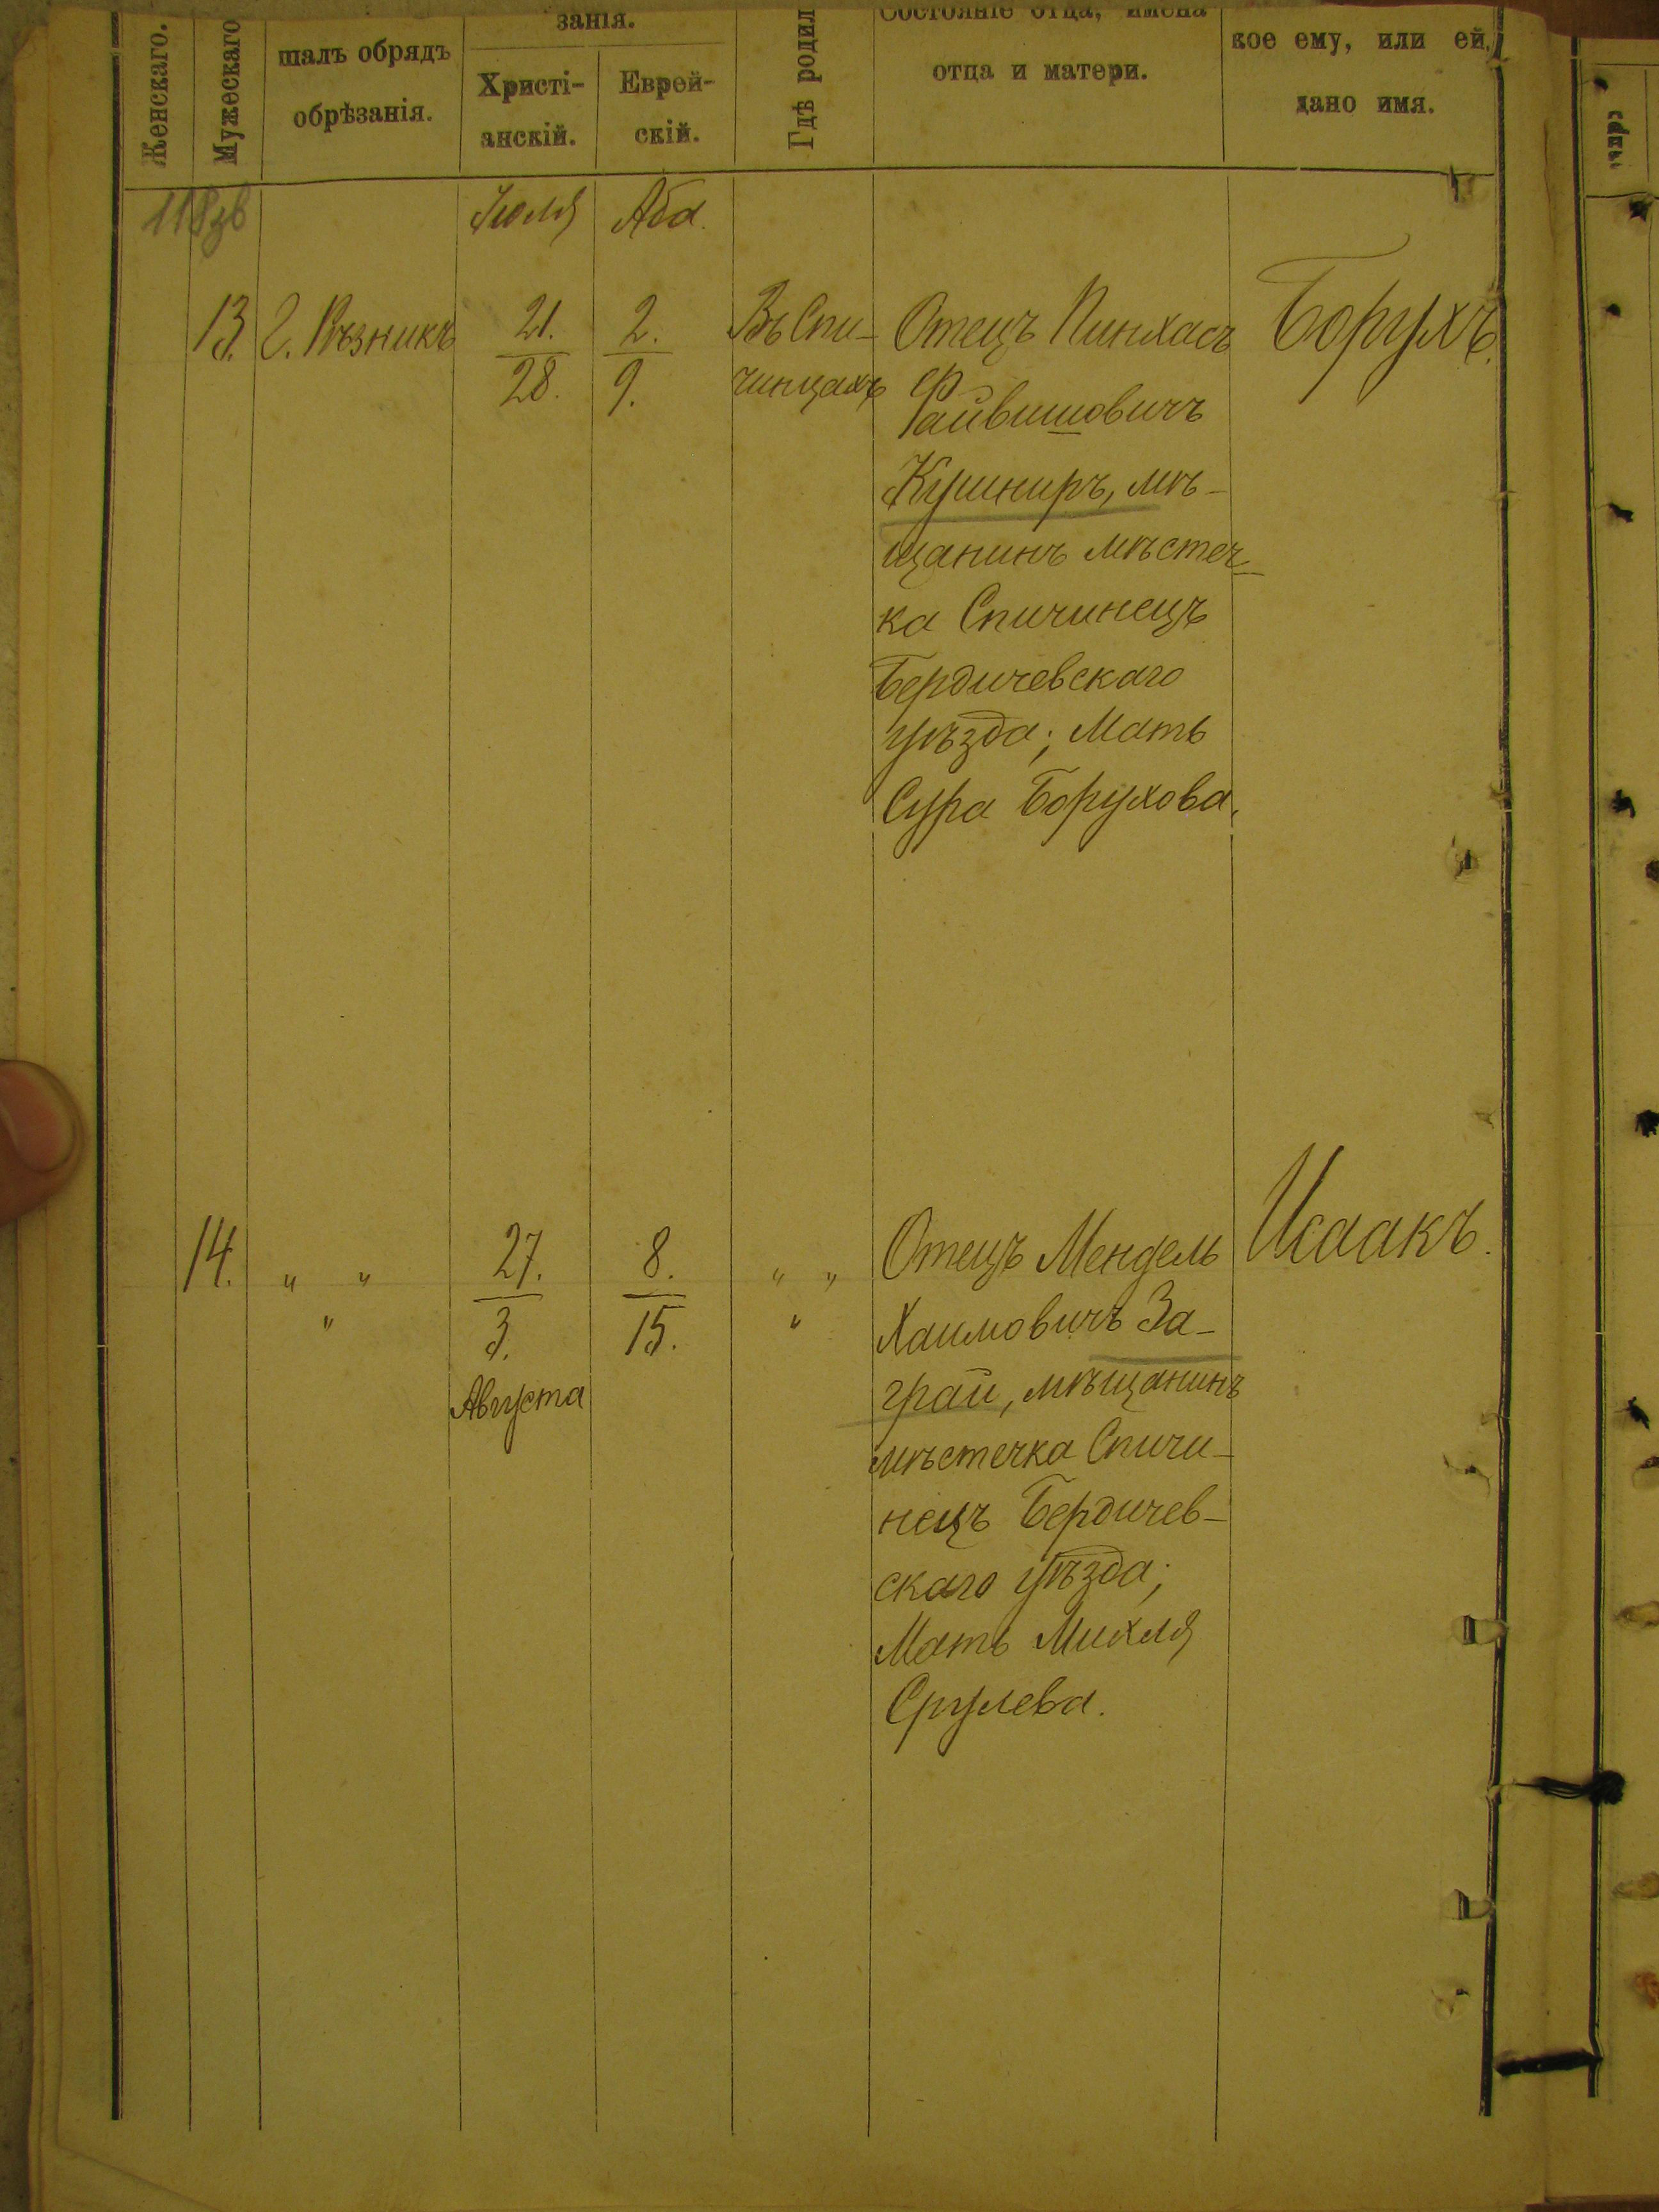 Женскаго.
Мужескаго
шалъ обрядъ
обрѣзанія.
занія.
Христі-
анскій.
Еврей-
скій.
Гдѣ родил
Состояніе отца, имена
отца и матери.
кое ему, или ей,
дано имя.
118зв
Іюля
Аба.
13.
Г. Рѣзникъ
21.
28.
2.
9.
Въ Спи-
чинцахъ
Отецъ Пинхасъ
Файвишовичъ
Кушниръ, мѣ-
щанинъ мѣстеч-
ка Спичинецъ
Бердичевскаго
уѣзда; Мать
Сура Борухова.
Борухъ.
14.
" "
"
27.
3.
Августа
8.
15.
" "
"
Отецъ Мендель
Хаимовичъ За-
грай, мѣщанинъ
мѣстечка Спичи-
нецъ Бердичев-
скаго уѣзда;
Мать Михля
Срулева.
Исаакъ.